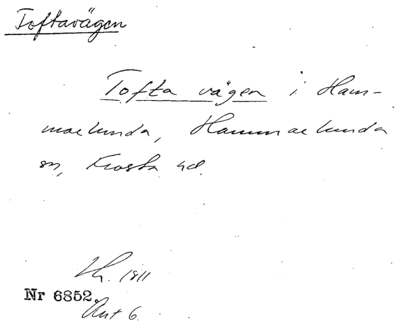 Toftavägen
Tofta vägen i Ham-
marlunda, Hammarlunda
sn, Frosta hd.
1811
Nr 6852.
Akt 6